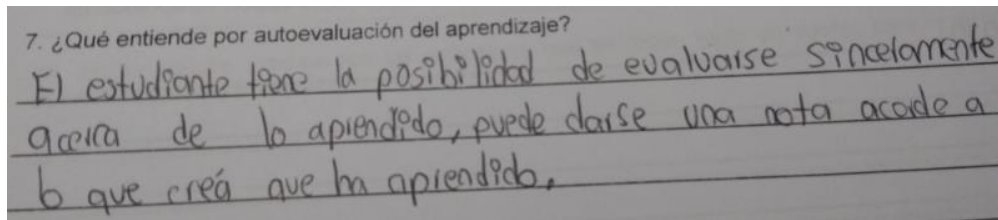 7. ¿Qué entiende por autoevaluación del aprendizaje?
El estudiante tiene la posibilidad de evaluarse sincelamente
acerca de lo aprendido, puede darse una nota acorde a
lo que creá que ha aprendido.